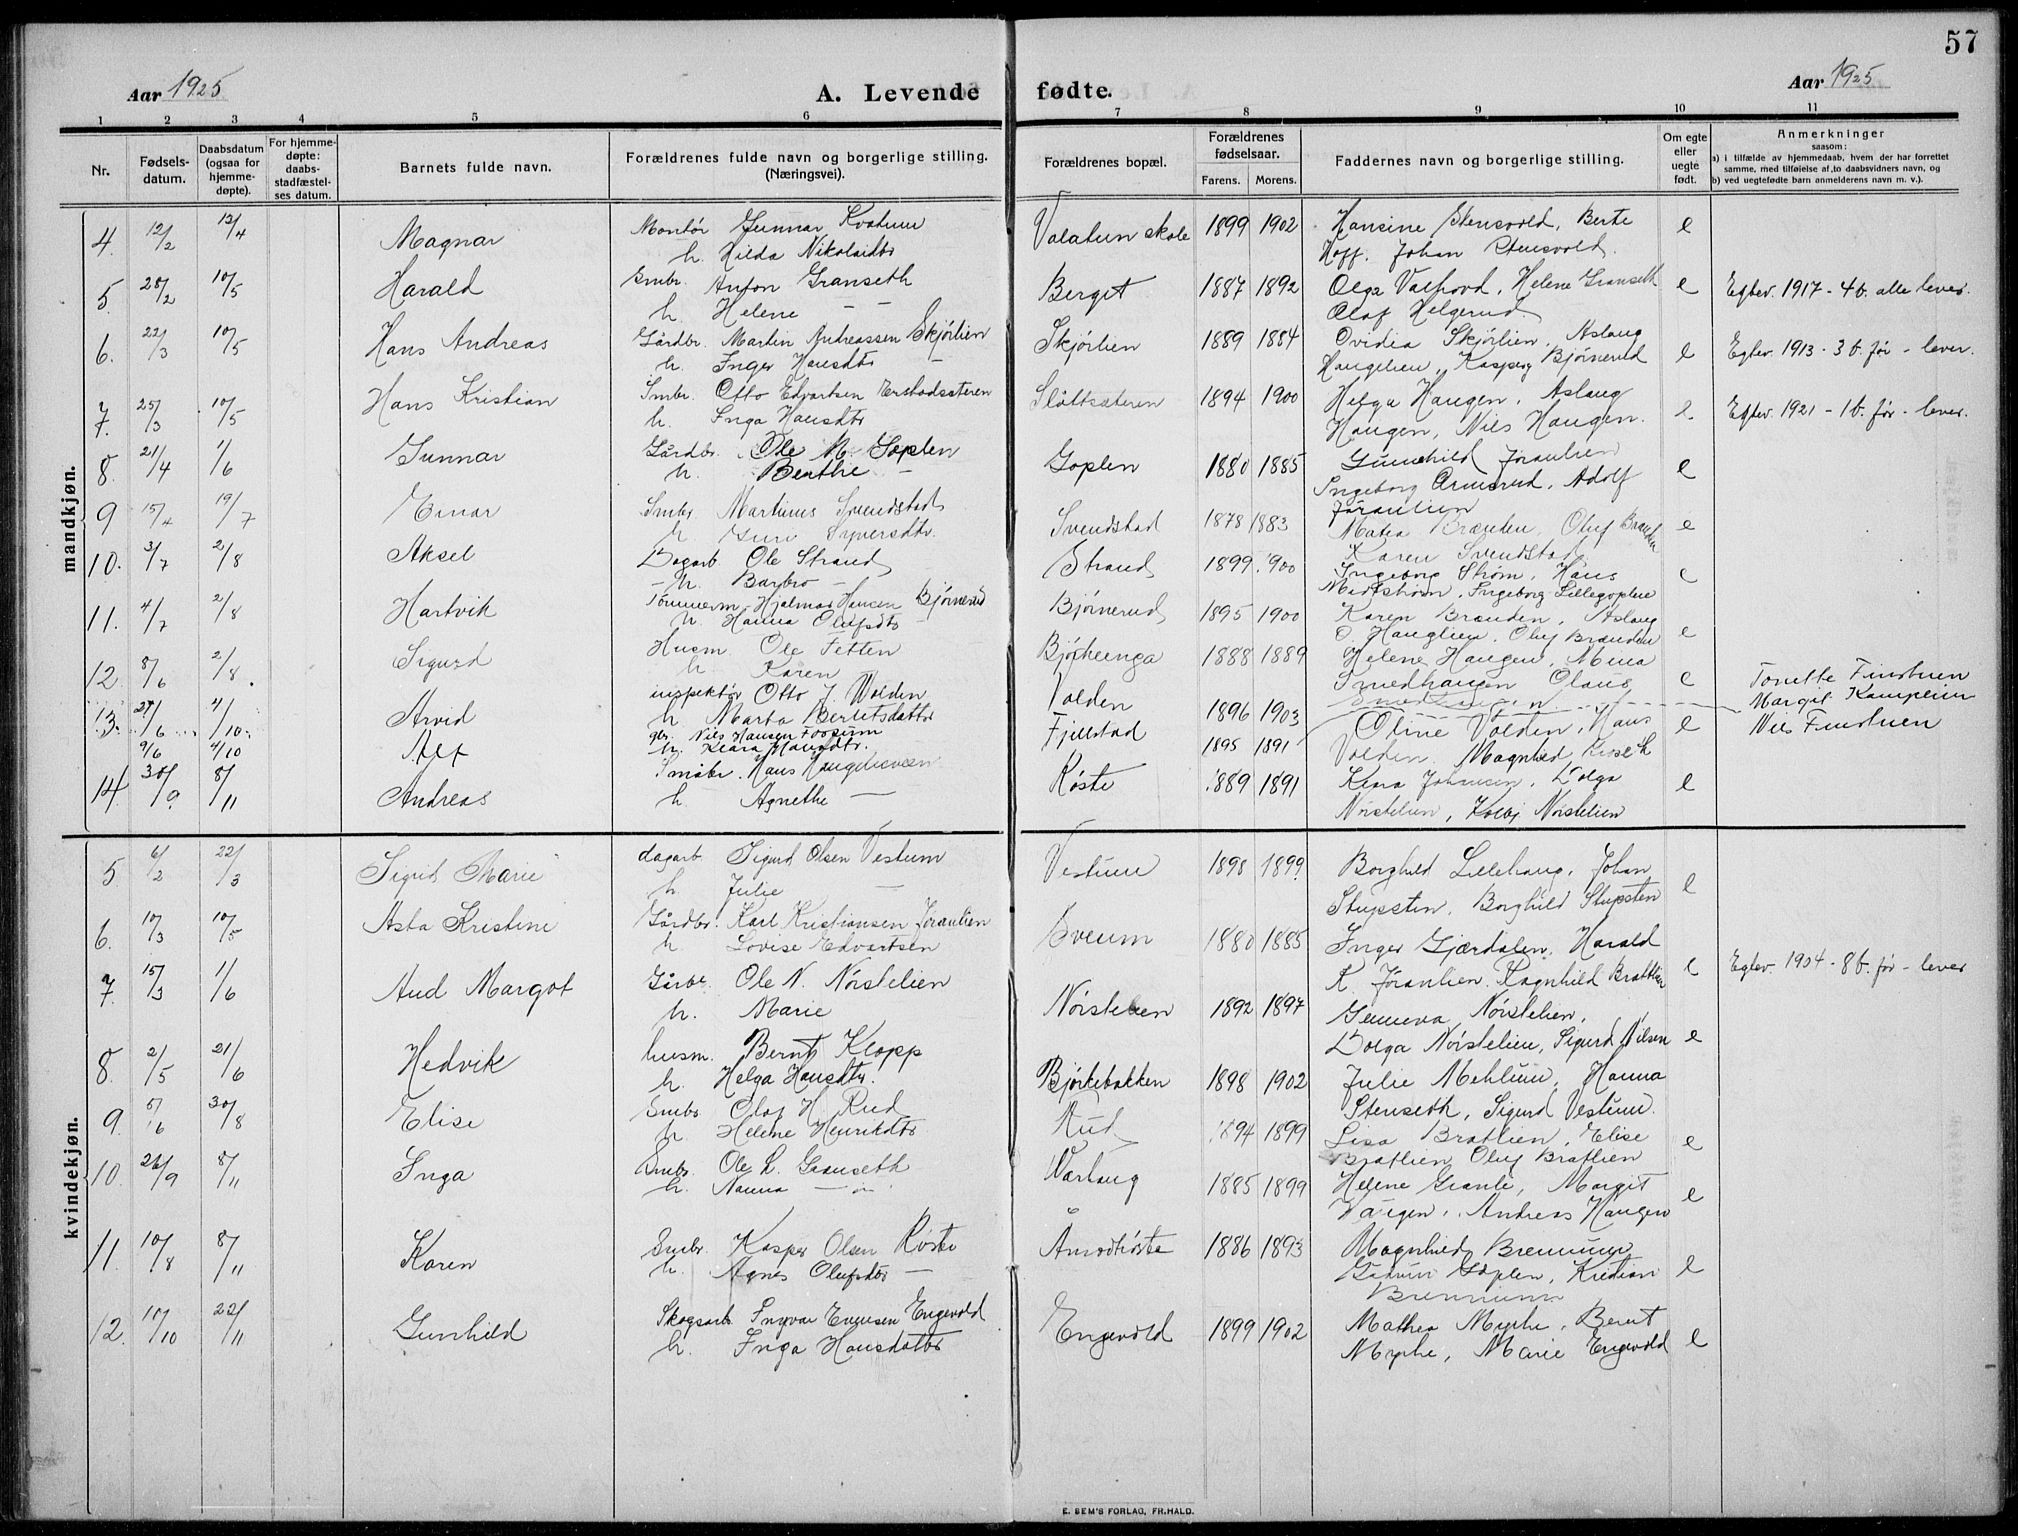 57
Aar 1925
A. Levende fødte.
Aar 1925
1 2 3 4 5 6 7 8 9 10 11
Nr.
Fødselsdatum.
Daabsdatum (ogsaa for hjemmedøpte).
For hjemmedøpte: daabsstadfæstelses datum.
Barnets fulde navn.
Forældrenes fulde navn og borgerlige stilling. (Næringsvei).
Forældrenes bopæl.
Forældrenes fødselsaar.
Farens. Morens.
Faddernes navn og borgerlige stilling.
Om egte eller uegte født.
Anmerkninger
saasom:
a) i tilfælde av hjemmedaab, hvem der har forrettet samme, med tilføielse af to daabsvidners navn, og
b) ved uegtefødte barn anmelderens navn m. v.).
mandkjøn.
4. 12/2 12/4 Magnar Montør Gunnar Kvatum Valatun skole 1899 1902 Hansine Stensvold, Berte e
h. Hilda Nikolaidtr Hoff. Johan Stensvold.
5 28/2 10/5 Harald Smbr. Anton Granseth Berget 1887 1892 Olga Helene Granseth e Egtev. 1917 - 4 b. alle lever.
h. Helene — Olaf Helgerud
6. 22/3 10/5 Hans Andreas Gårdbr. Martin Andreassen Skjørlien Skjørlien 1889 1884 Ovidia Skjørlien, Aslaug e Egtev. 1913 - 3 b. før - lever.
h. Inger Hansdtr — Kasper Bjørnerud
7. 25/3 10/5 Hans Kristian Smbr. Otto Edvartsen Slåttsæteren 1894 1900 Helga Haugen, Aslaug e Egtev. 1921 - 1 b. før - lever.
h. Inga Hansdtr Haugen, Nils Haugen.
8. 21/4 1/6 Gunnar Gårdbr. Ole M. Goplen Goplen 1880 1885 Gunhild Jøranlien e
h. Berthe — Ingeborg Adolf
Jøranlien
9 15/4 19/7 Einar Smbr. Martinus Svendstad Svendstad 1878 1883 Matea Brænden, Oluf Brænden e
h. Guri Syversdtr. Karen Svendstad
10. 3/7 2/8 Aksel Dagarb Ole Strand Strand 1899 1900 Ingeborg Strøm, Hans e
h. Barbro — Ingeborg Lillegoplen
11. 4/7 2/8 Hartvik Tømmerm. Hjalmar Hansen Bjørnerud Bjørnerud 1895 1900 Karen Brænden, Aslaug
h. Hanna Olufsdtr — O. Hauglien, Oluf Brænden e
12. 8/6 2/8. Sigurd Husm. Ole Tetten 1888 1889 Helene Haugen, Mina
h. Karen Smedhaugen Olaus e Tonette Finstuen
13. 27/6 4/10 Arvid inspektør Otto J Volden Volden 1896 1903 Margit
h. Marta Berntsdatter Oline Volden, Hans e Nils Finstuen
9/6 4/10 Alf gbr. Nils Hansen Fossum Fjellstad 1895 1891 Volden, Magnhild
h. Klara Hansdtr.
14. 30/9 8/11 Andreas Småbr. Hans Røste 1889 1891 Klara Johansen, Dolga e
h. Agnethe — Nørstelien, Nørstelien
kvindekjøn.
5 6/2 22/3 Sigrid Marie dagarb. Sigurd Olsen Vestum Vestum 1898 1899 Borghild Lillehaug, Johan e
h. Julie — Stupsten, Borghild Stupsten
6. 10/3 10/5 Asta Kristine Gårdbr. Karl Kristiansen Jøranlien Sveum 1880 1885 Inger Gjærdalen, Harald e Egtev. 1904 - 8 b. før - lever
h. Lovise Edvartsen K. Jøranlien, Ragnhild Bratlien
7. 15/3 1/6 Aud Margot Gårbr. Ole N. Nørstelien Nørstelien 1892 1897 Nørstelien, e
h. Marie Dolga Nørstelien, Sigurd Nilsen
8. 2/5 21/6 Hedvik husm. Bernt Klopp Bjørkebakken 1898 1902 Julie Mehlum, Hanna
h. Helga Hansdtr. Stenseth, Sigurd Vestum.
9. 5/6 30/8 Elise Smbr. Olaf H. Rud Rud 1894 1899 Lisa Bratlien, Elise e
h. Helene Henriksdtr Bratlien Oluf Bratlien
10. 26/9 8/11 Inga Smbr. Ole L. Granseth Varhaug 1885 1899 Helene Granli, Margit e
h. Nanna — Haugen, Andreas Haugen
11. 10/8 8/11 Karen Smbr. Kasper Olsen Røste Åmodtrøste 1886 1893 Magnhild Brennum e
h. Agnes Olufsdtr — Goplen, Kristian
Brennum
12. 10/10 22/11 Gunhild Skogsarb. Ingvar Engevold Engevold 1899 1902 Mathea Myrhe, Bernt e
h. Inga Hansdatter Myrhe, Marie Engevold
E. SEM'S FORLAG, FR.HALD.